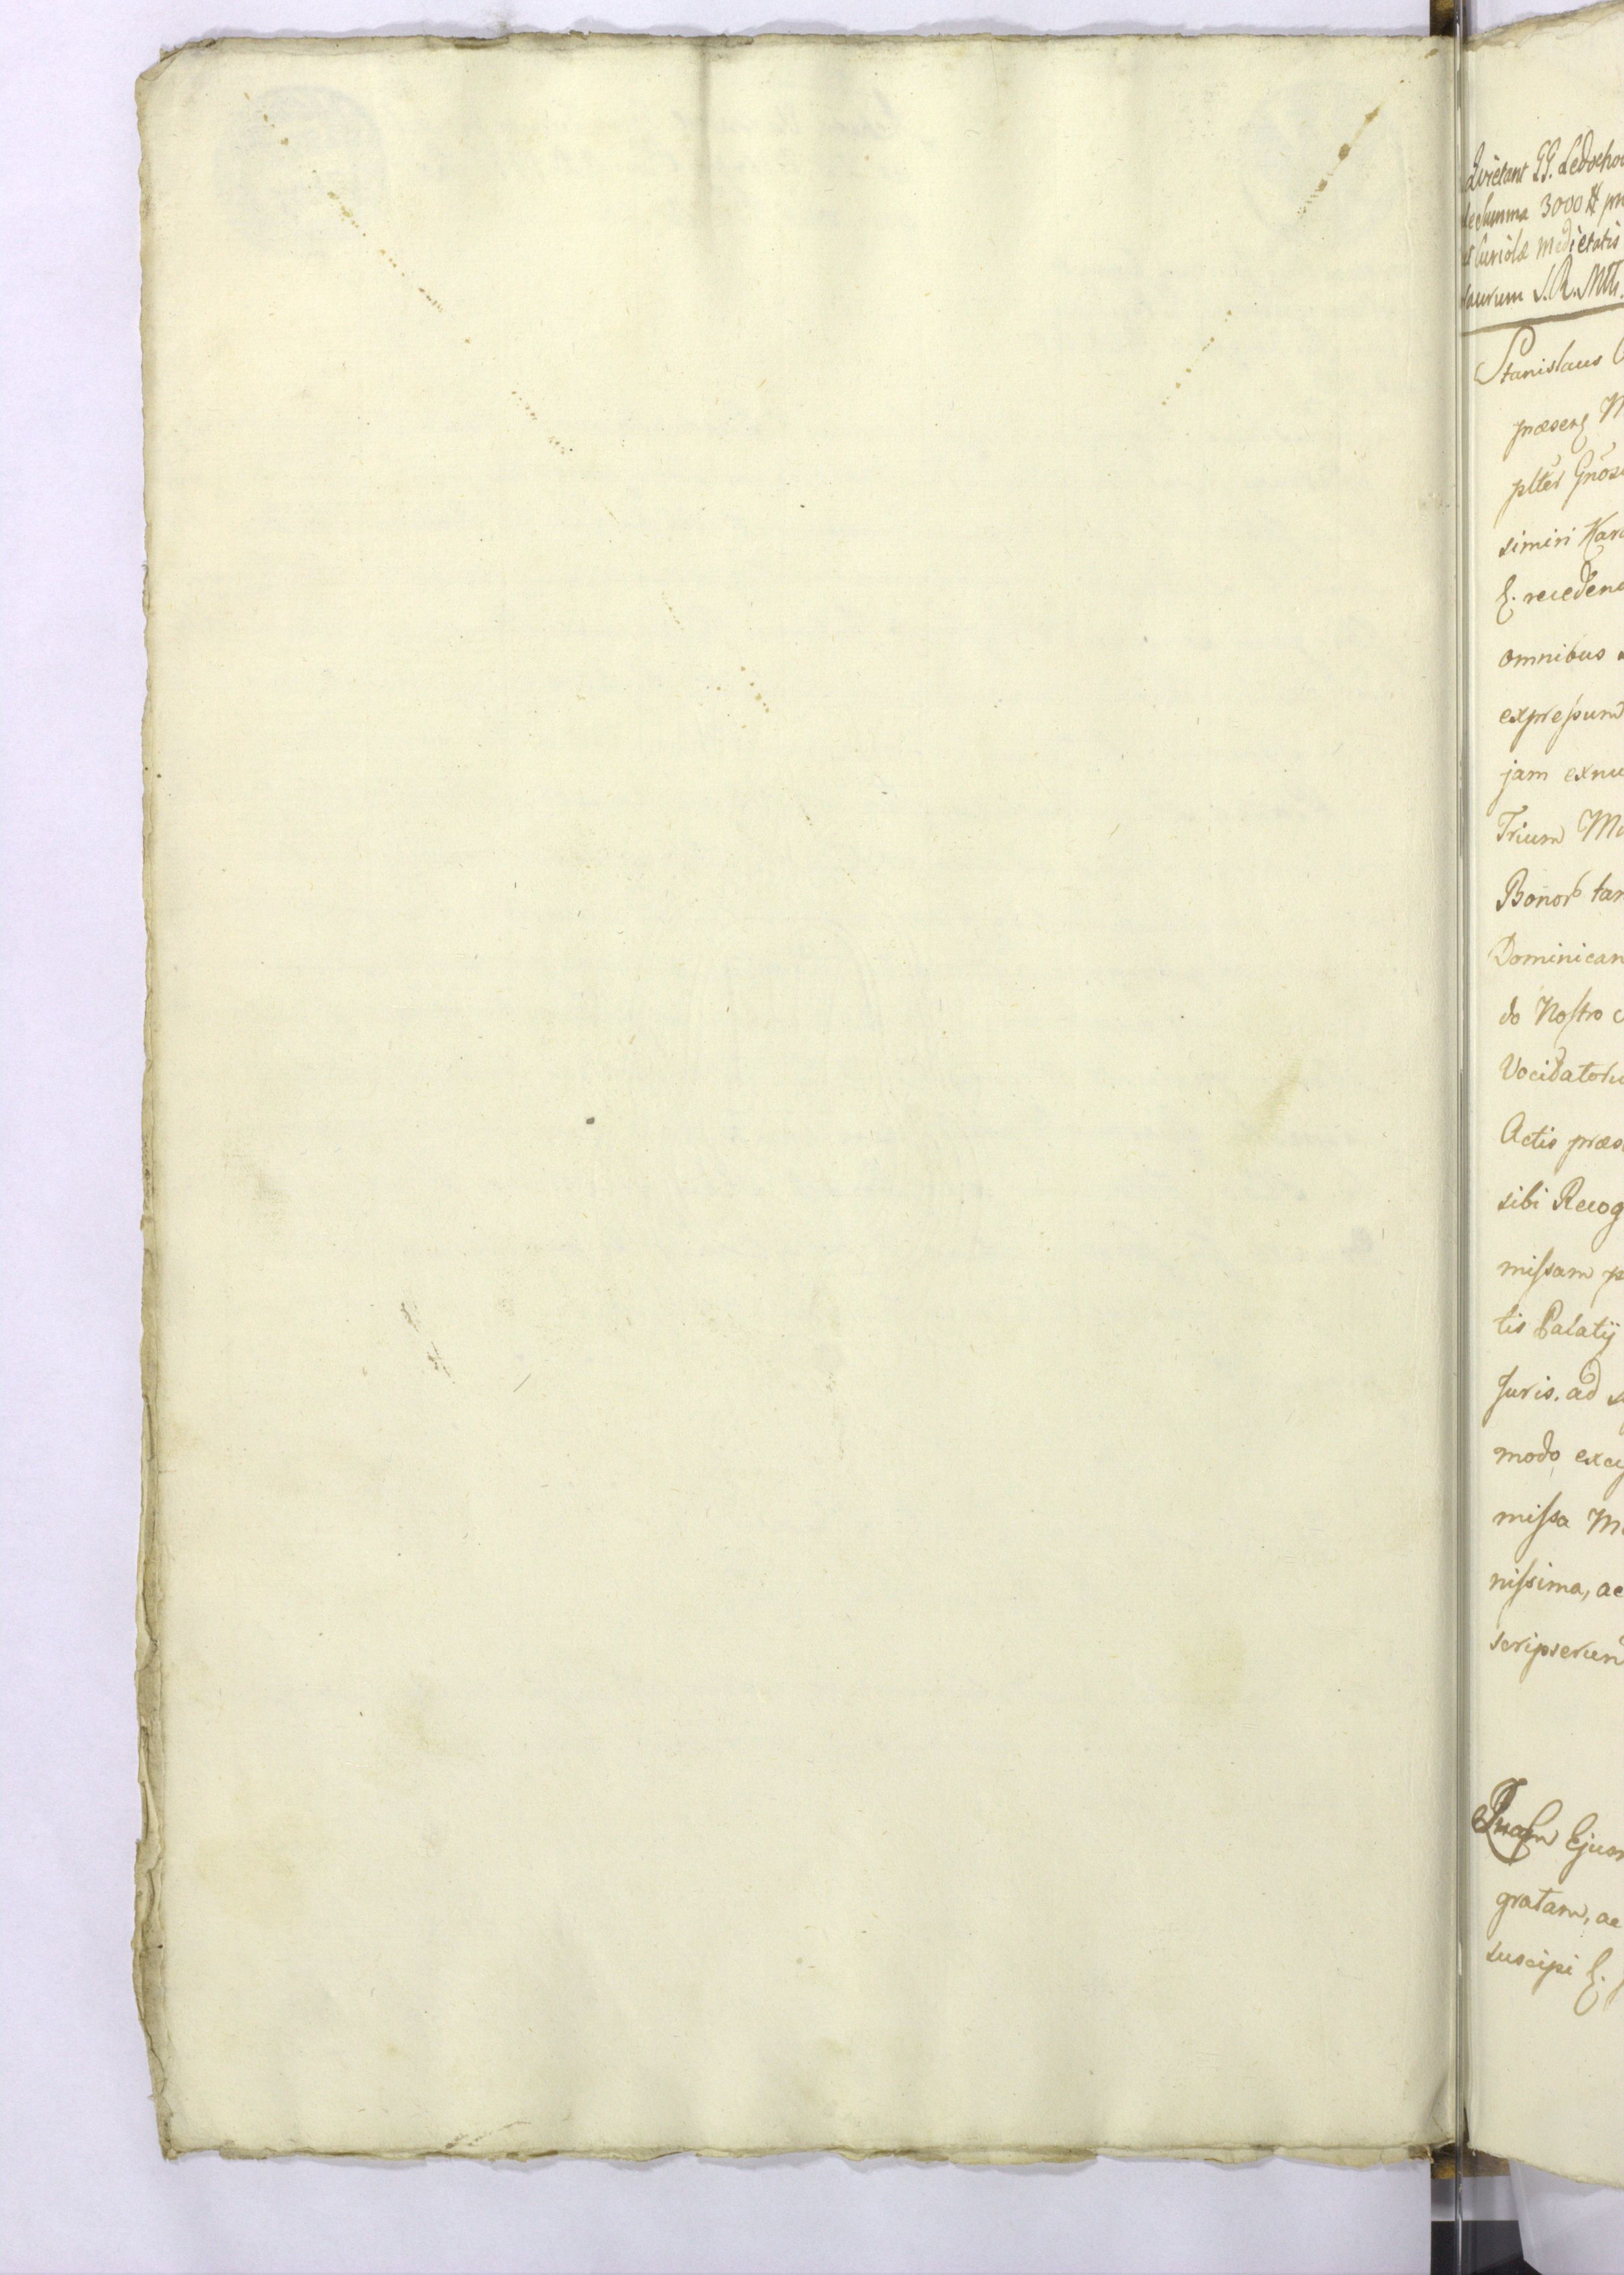 Quietant GG. Ledochow
de Summa 3000 pr
Curiolæ Medietatis
S. R. Mtti.
Stanislaus
præsens
pltes Gnosi
simiri Kar
& recedend
omnibus
expressum
jam exnu
Trium Mi
Bonor tam
Dominican
do Nostro c
Vocidatoru
Actis præs
sibi Recog
missam p
tis Palatij
Juris. ad s
modo, excip
missa M
nissima, ac
scripserun
Quam Ejusm
gratam, ac
suscipi &